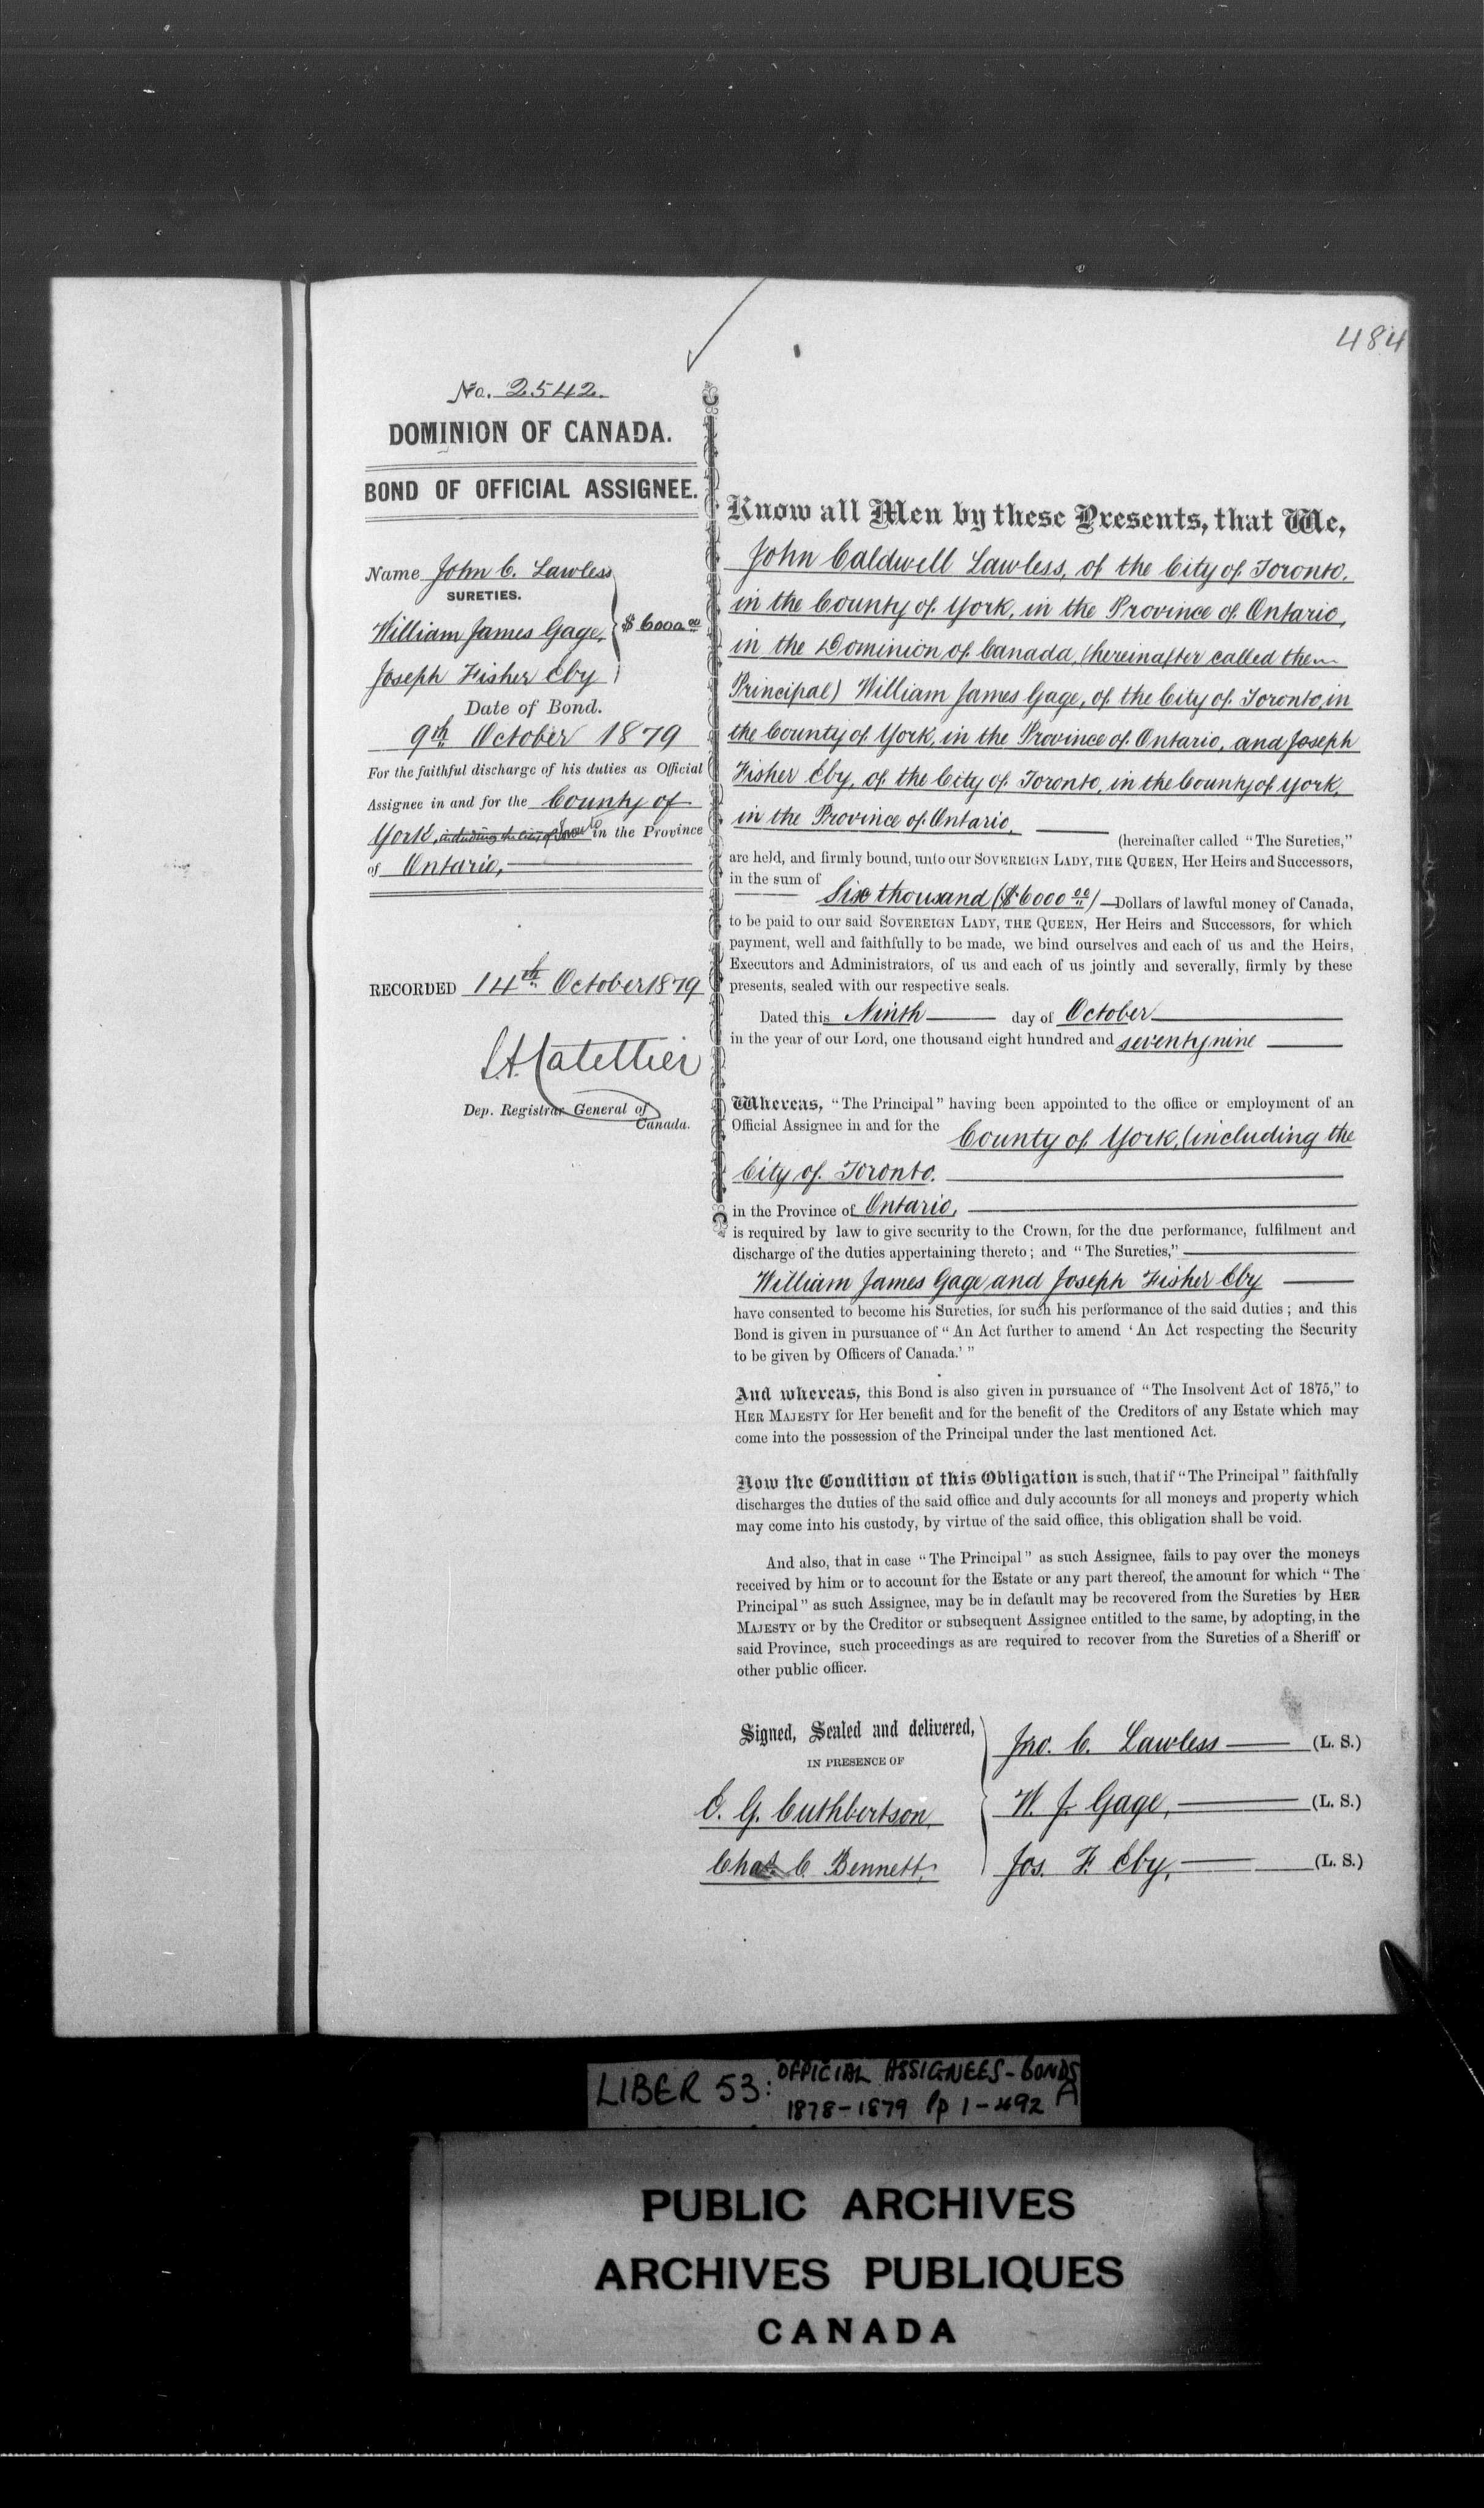 484
No. 2542.
DOMINION OF CANADA.
BOND OF OFFICIAL ASSIGNEE.
Name John C. Lawless
SURETIES.
William James Gage, $6000.00
Joseph Fisher Eby
Date of Bond.
9th October 1879
For the faithful discharge of his duties as Official
Assignee in and for the County of
York, including the City of Toronto in the Province
of Ontario,
RECORDED 14th October 1879
Dep. Registrar General of
Canada.
Know all Men by these Presents, that We,
John Caldwell Lawless, of the City of Toronto,
in the County of York, in the Province of Ontario,
in the Dominion of Canada, (hereinafter called the
Principal) William James Gage, of the City of Toronto, in
the County of York, in the Province of Ontario, and Joseph
Fisher Eby, of the City of Toronto, in the County of York,
in the Province of Ontario,
(hereinafter called "The Sureties,"
are held, and firmly bound, unto our SOVEREIGN LADY, THE QUEEN, Her Heirs and Successors,
in the sum of
Six thousand ($6000.00) Dollars of lawful money of Canada,
to be paid to our said SOVEREIGN LADY, THE QUEEN, Her Heirs and Successors, for which
payment, well and faithfully to be made, we bind ourselves and each of us and the Heirs,
Executors and Administrators, of us and each of us jointly and severally, firmly by these
presents, sealed with our respective seals.
Dated this Ninth day of October
in the year of our Lord, one thousand eight hundred and seventy nine
Whereas, "The Principal" having been appointed to the office or employment of an
Official Assignee in and for the County of York, (including the
City of Toronto.
in the Province of Ontario,
is required by law to give security to the Crown, for the due performance, fulfilment and
discharge of the duties appertaining thereto; and "The Sureties,"
William James Gage and Joseph Fisher Eby
have consented to become his Sureties, for such his performance of the said duties; and this
Bond is given in pursuance of "An Act further to amend 'An Act respecting the Security
to be given by Officers of Canada.'"
And whereas, this Bond is also given in pursuance of "The Insolvent Act of 1875," to
HER MAJESTY for Her benefit and for the benefit of the Creditors of any Estate which may
come into the possession of the Principal under the last mentioned Act.
Now the Condition of this Obligation is such, that if "The Principal" faithfully
discharges the duties of the said office and duly accounts for all moneys and property which
may come into his custody, by virtue of the said office, this obligation shall be void.
And also, that in case "The Principal" as such Assignee, fails to pay over the moneys
received by him or to account for the Estate or any part thereof, the amount for which "The
Principal" as such Assignee, may be in default may be recovered from the Sureties by HER
MAJESTY or by the Creditor or subsequent Assignee entitled to the same, by adopting, in the
said Province, such proceedings as are required to recover from the Sureties of a Sheriff or
other public officer.
Signed, Sealed and delivered,
IN PRESENCE OF
Jno. C. Lawless (L. S.)
W. J. Gage, (L. S.)
Jos. F. Eby, (L. S.)
G. Cuthbertson,
Chas. C. Bennett,
LIBER 53: OFFICIAL ASSIGNEES - BONDS
1878-1879 Pp 1-492 A
PUBLIC ARCHIVES
ARCHIVES PUBLIQUES
CANADA